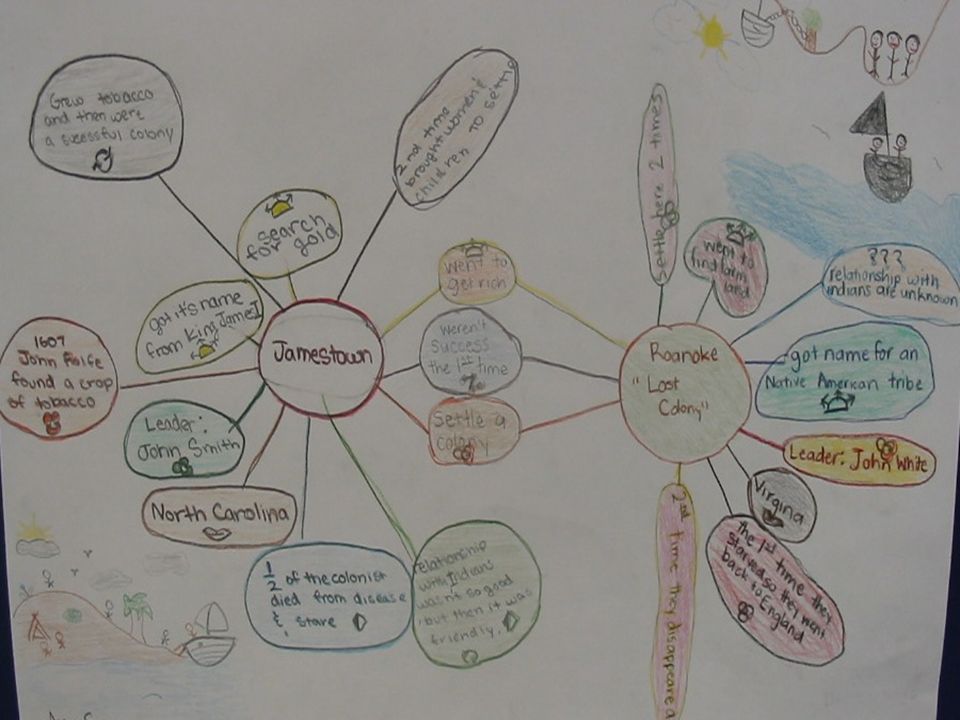 Grew tobacco
and then were
a sucessful colony
2nd time
brought women &
children TO settle
search
for gold
got it's name
from King James I
1607
John Rolfe
found a crop
of tobacco
Jamestown
Leader:
John Smith
North Carolina
1/2 of the colonist
died from disease
& stare
relationship
with Indians
wasn't so good
but then it was
friendly.
went to
get rich
Weren't
success
the 1st time
Settle a
colony
Roanoke
"Lost
Colony"
Settle here 2 times
went to
find farm
land
???
relationship with
indians are unknown
got name for an
Native American tribe
Leader: John White
Virgina
the 1st time they
starved so they went
back to England
2nd time they disappeared